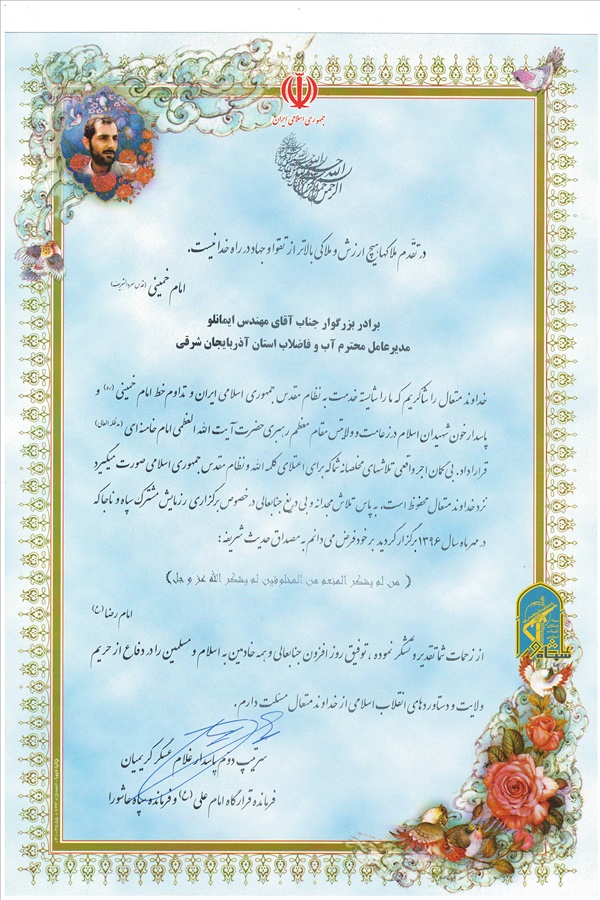 جمهوری اسلامی ایران
بسم الله الرحمن الرحیم
در تقدّم ملاکها هیچ ارزش و ملاکی بالاتر از تقوا و جهاد در راه خدا نیست.
امام خمینی (قدس سره الشریف)
برادر بزرگوار جناب آقای مهندس ایمانلو
مدیرعامل محترم آب و فاضلاب استان آذربایجان شرقی
خداوند متعال را شاکریم که ما را شایسته خدمت به نظام مقدس جمهوری اسلامی ایران و تداوم خط امام خمینی (ره) و
پاسدار خون شهیدان اسلام در زعامت و ولایت مقام معظم رهبری حضرت آیت الله العظمی امام خامنه ای (مدظله العالی)
قرار داد. بی گمان اجر واقعی تلاشهای مخلصانه شما که برای اعتلای کلمه الله و نظام مقدس جمهوری اسلامی صورت میگیرد
نزد خداوند متعال محفوظ است. به پاس تلاش مجدانه و بی دریغ جنابعالی در خصوص برگزاری رزمایش مشترک سپاه و ناجا که
در مهر ماه سال ۱۳۹۶ برگزار گردید بر خود فرض می دانم به مصداق حدیث شریفه :
( من لم یشکر المنعم من المخلوقین لم یشکر الله عز و جل )
امام رضا (ع)
از زحمات شما تقدیر و تشکر نموده ، توفیق روز افزون جنابعالی و همه خادمین به اسلام و مسلمین را در دفاع از حریم
ولایت و دستاوردهای انقلاب اسلامی از خداوند متعال مسئلت دارم .
سرتیپ دوم پاسدار غلام عسگر کریمیان
فرمانده قرارگاه امام علی (ع) و فرمانده سپاه عاشورا
عاشورا